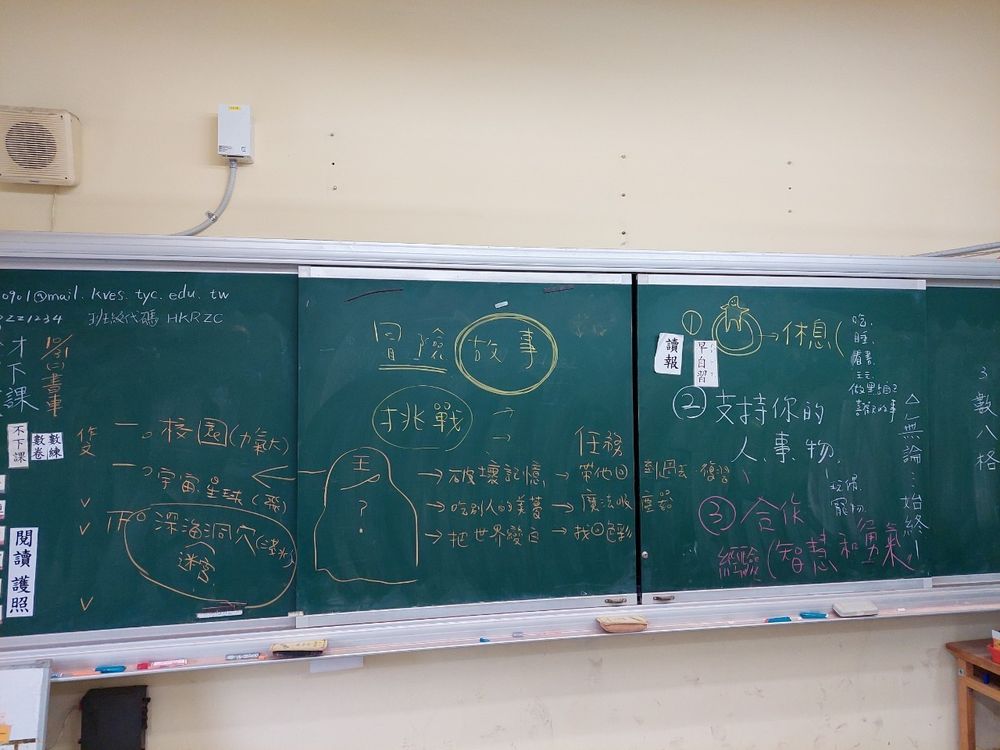 0901@mail.kves.tyc.edu.tw
221234 班級代碼 HKRZC
才下課
10/31(二)書車
不下課
數卷
數練
閱讀護照
作文
一。校園(力氣大)
宇宙星球(飛)
深海洞穴(潛水)
迷宮
冒險故事
挑戰
王
?
任務
→破壞記憶→帶他回到過去.復習
→吃別人的美夢→魔法吸塵器
→把世界變白→找回色彩
①→休息(
吃、
睡、
看書、
讀報
早自習
②支持你的
人、事、物
玩偶、
寵物
③合作
經驗(智慧和勇氣
△無論…始終—
3
數八格